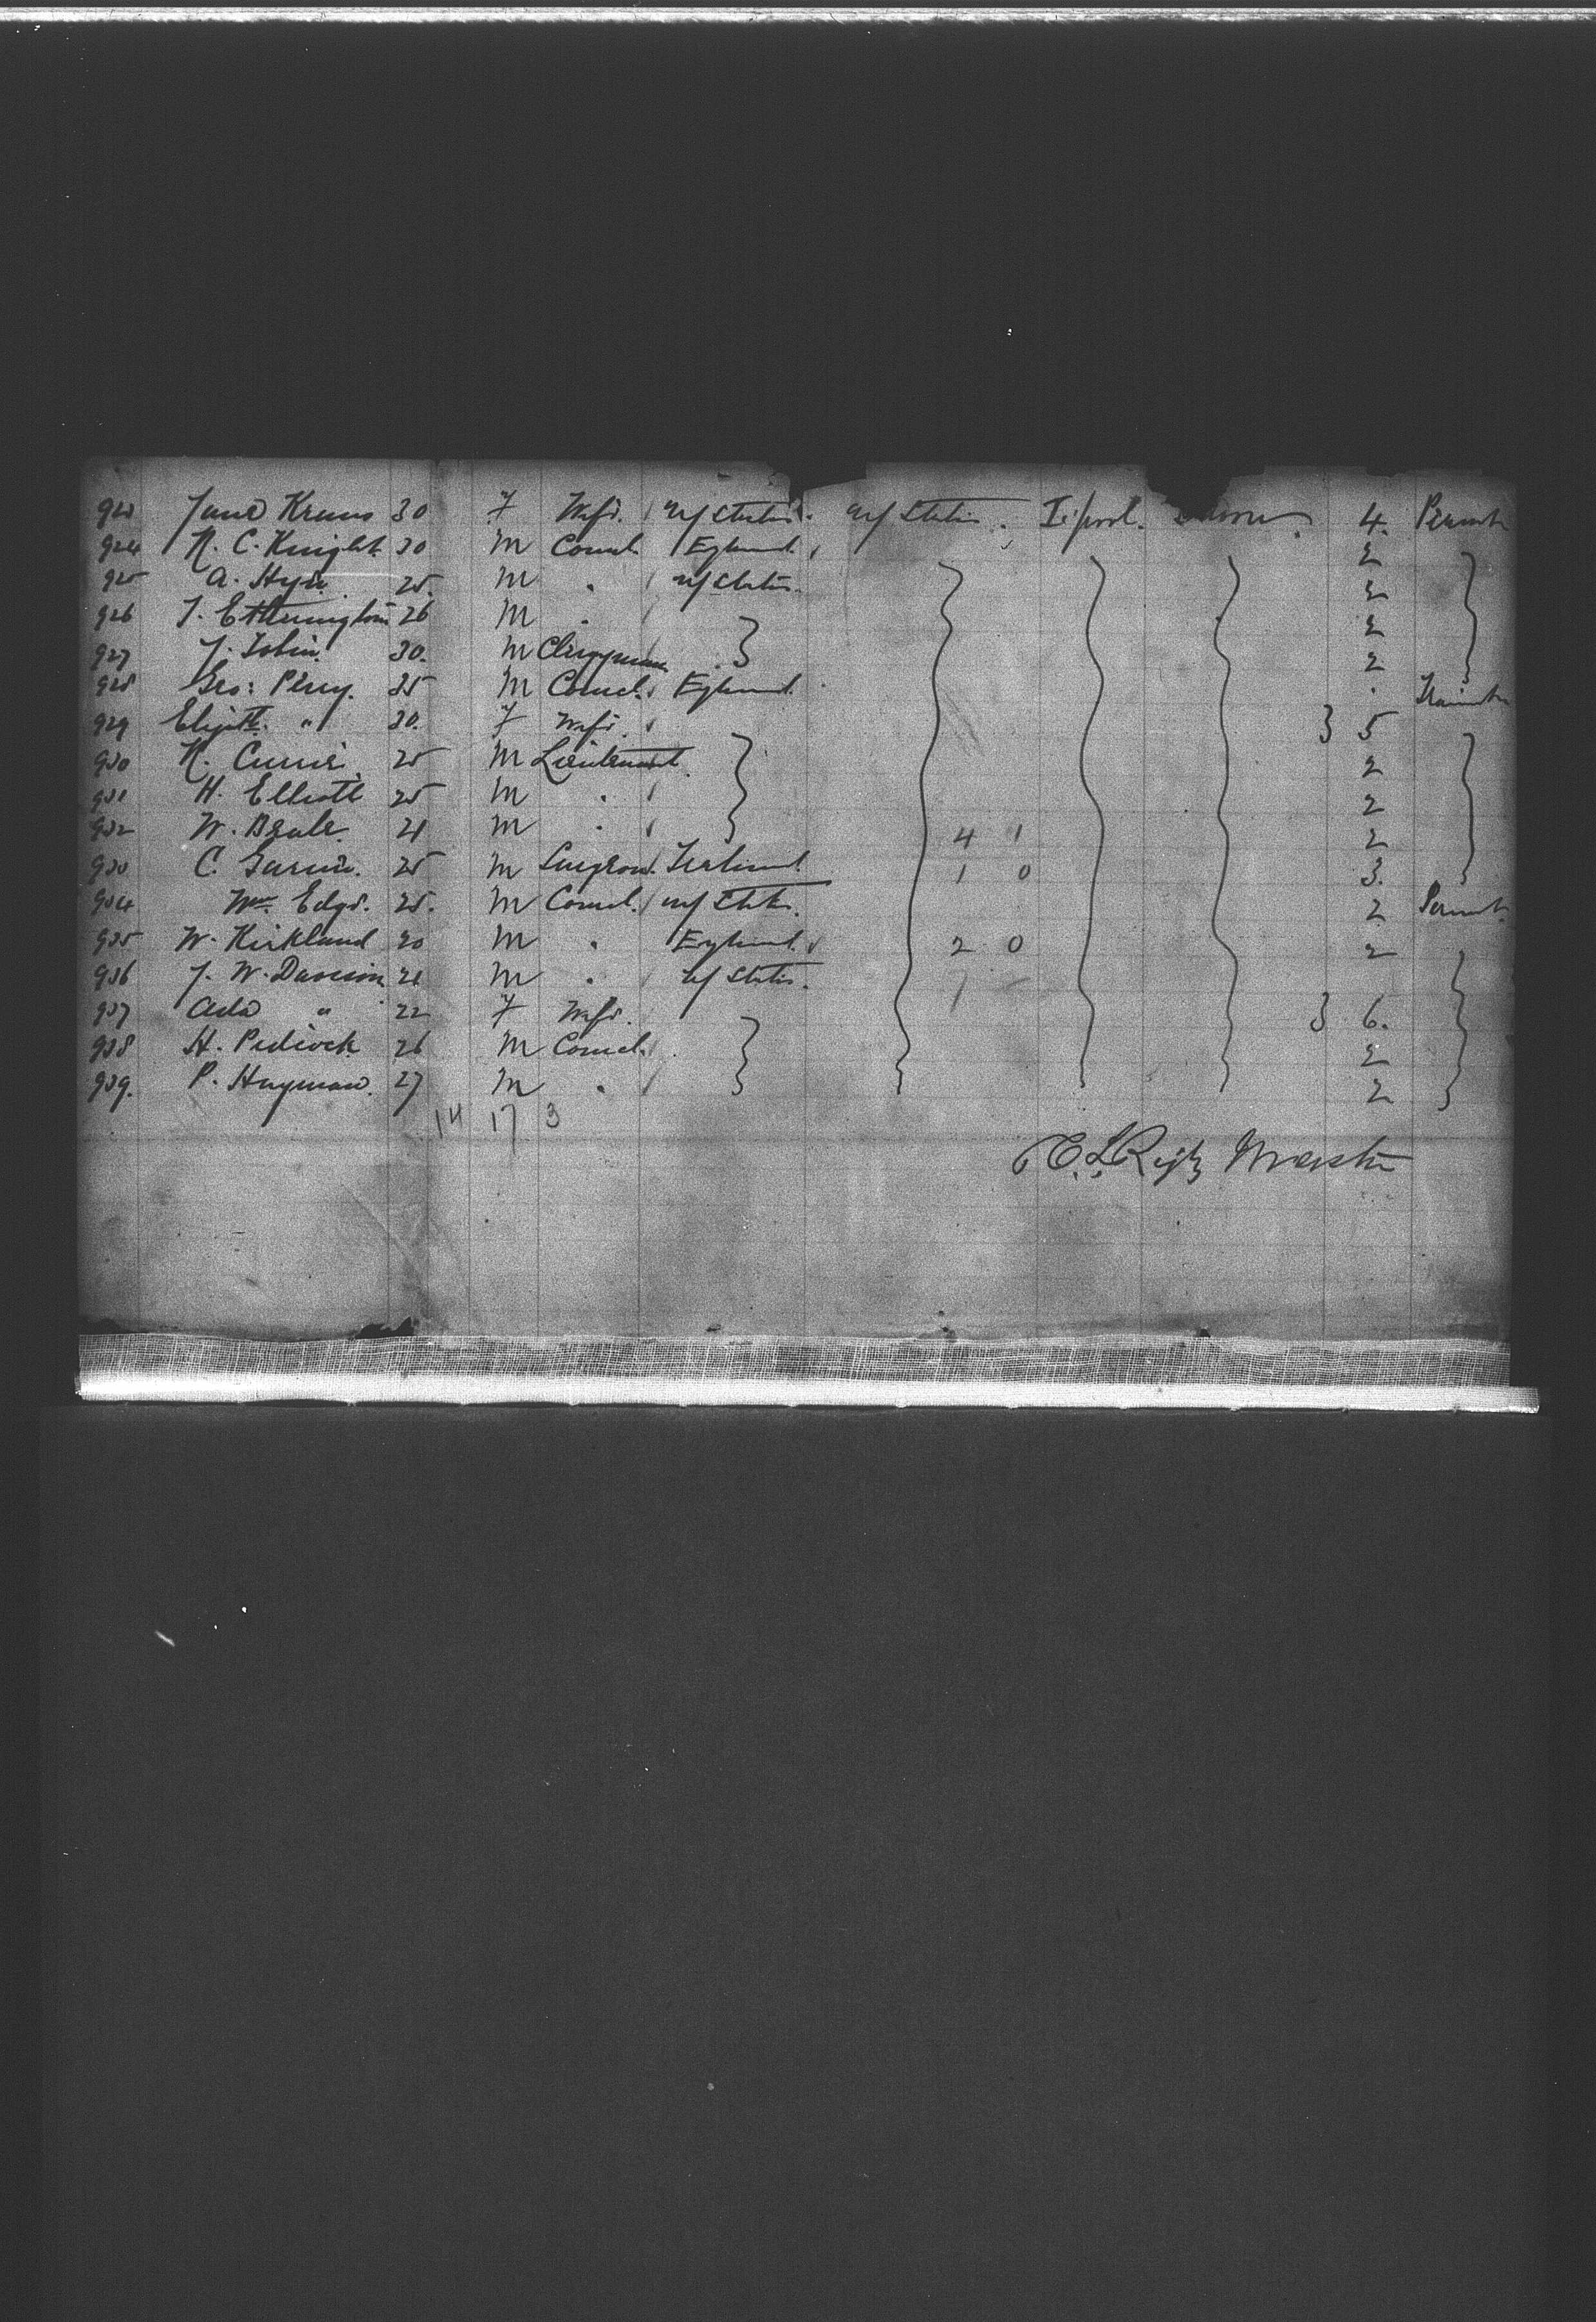 923 Jane Kraus 30 F Wife U/States. U/States. L'pool. Saloon 4. Permt
924 R. C. Knight 30 M Comcl. England. 2
925 A. Hyn 25. M " U/States. 2
926 T. Etherington 26 M " 2
927 J. Tobin 30. M Clergyman 2
928 Geo: Percy. 35 M Comcl. England. Transit
929 Elizth. " 30. F Wife. } 5
930 R. Currie. 25 M Lieutenant. 2
931 H. Elliott 25 M " 2
932 W. Beale. 21 M " 4 1 2
933 C. 25 M Surgeon. Ireland. 1 0 3.
934 Wm. Edge. 25. M Comcl. U/States. 2 Permt.
935 W. Kirkland 20 M " England. 2 0 2
936 J. W. Davison 21 M " U/States. 1
937 Ada " 22 F Wife. } 6.
938 H. Pidcock 26 M Comcl. 2
939. P. Hayman. 27 M " 2
14 17 3
Master